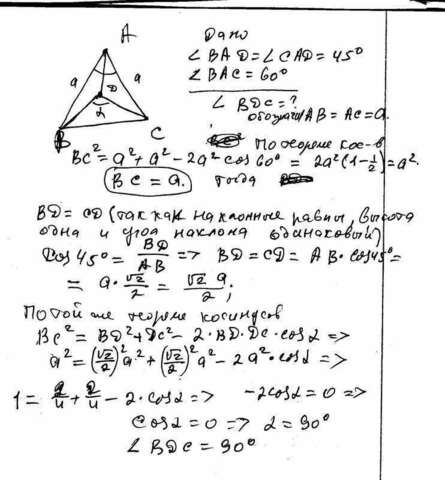 A
a a
D
α
B C
Дано
∠ BAD = ∠ CAD = 45°
∠ BAC = 60°
∠ BDC = ?
обознач AB = AC = a.
По теореме кос-в
BC² = a² + a² - 2a² cos 60° = 2a² (1 - 1/2) = a².
BC = a. тогда
BD = CD (так как наклонные равны, высота
одна и угол наклона одинаковый)
Cos 45° = BD/AB => BD = CD = AB · cos 45° =
= a · √2/2 = √2 a/2;
По той же теореме косинусов
BC² = BD² + DC² - 2 · BD · DC · cos α =>
a² = (√2/2)² a² + (√2/2)² a² - 2 a² · cos α =>
1 = 2/4 + 2/4 - 2 · cos α => -2 cos α = 0 =>
cos α = 0 => α = 90°
∠ BDC = 90°